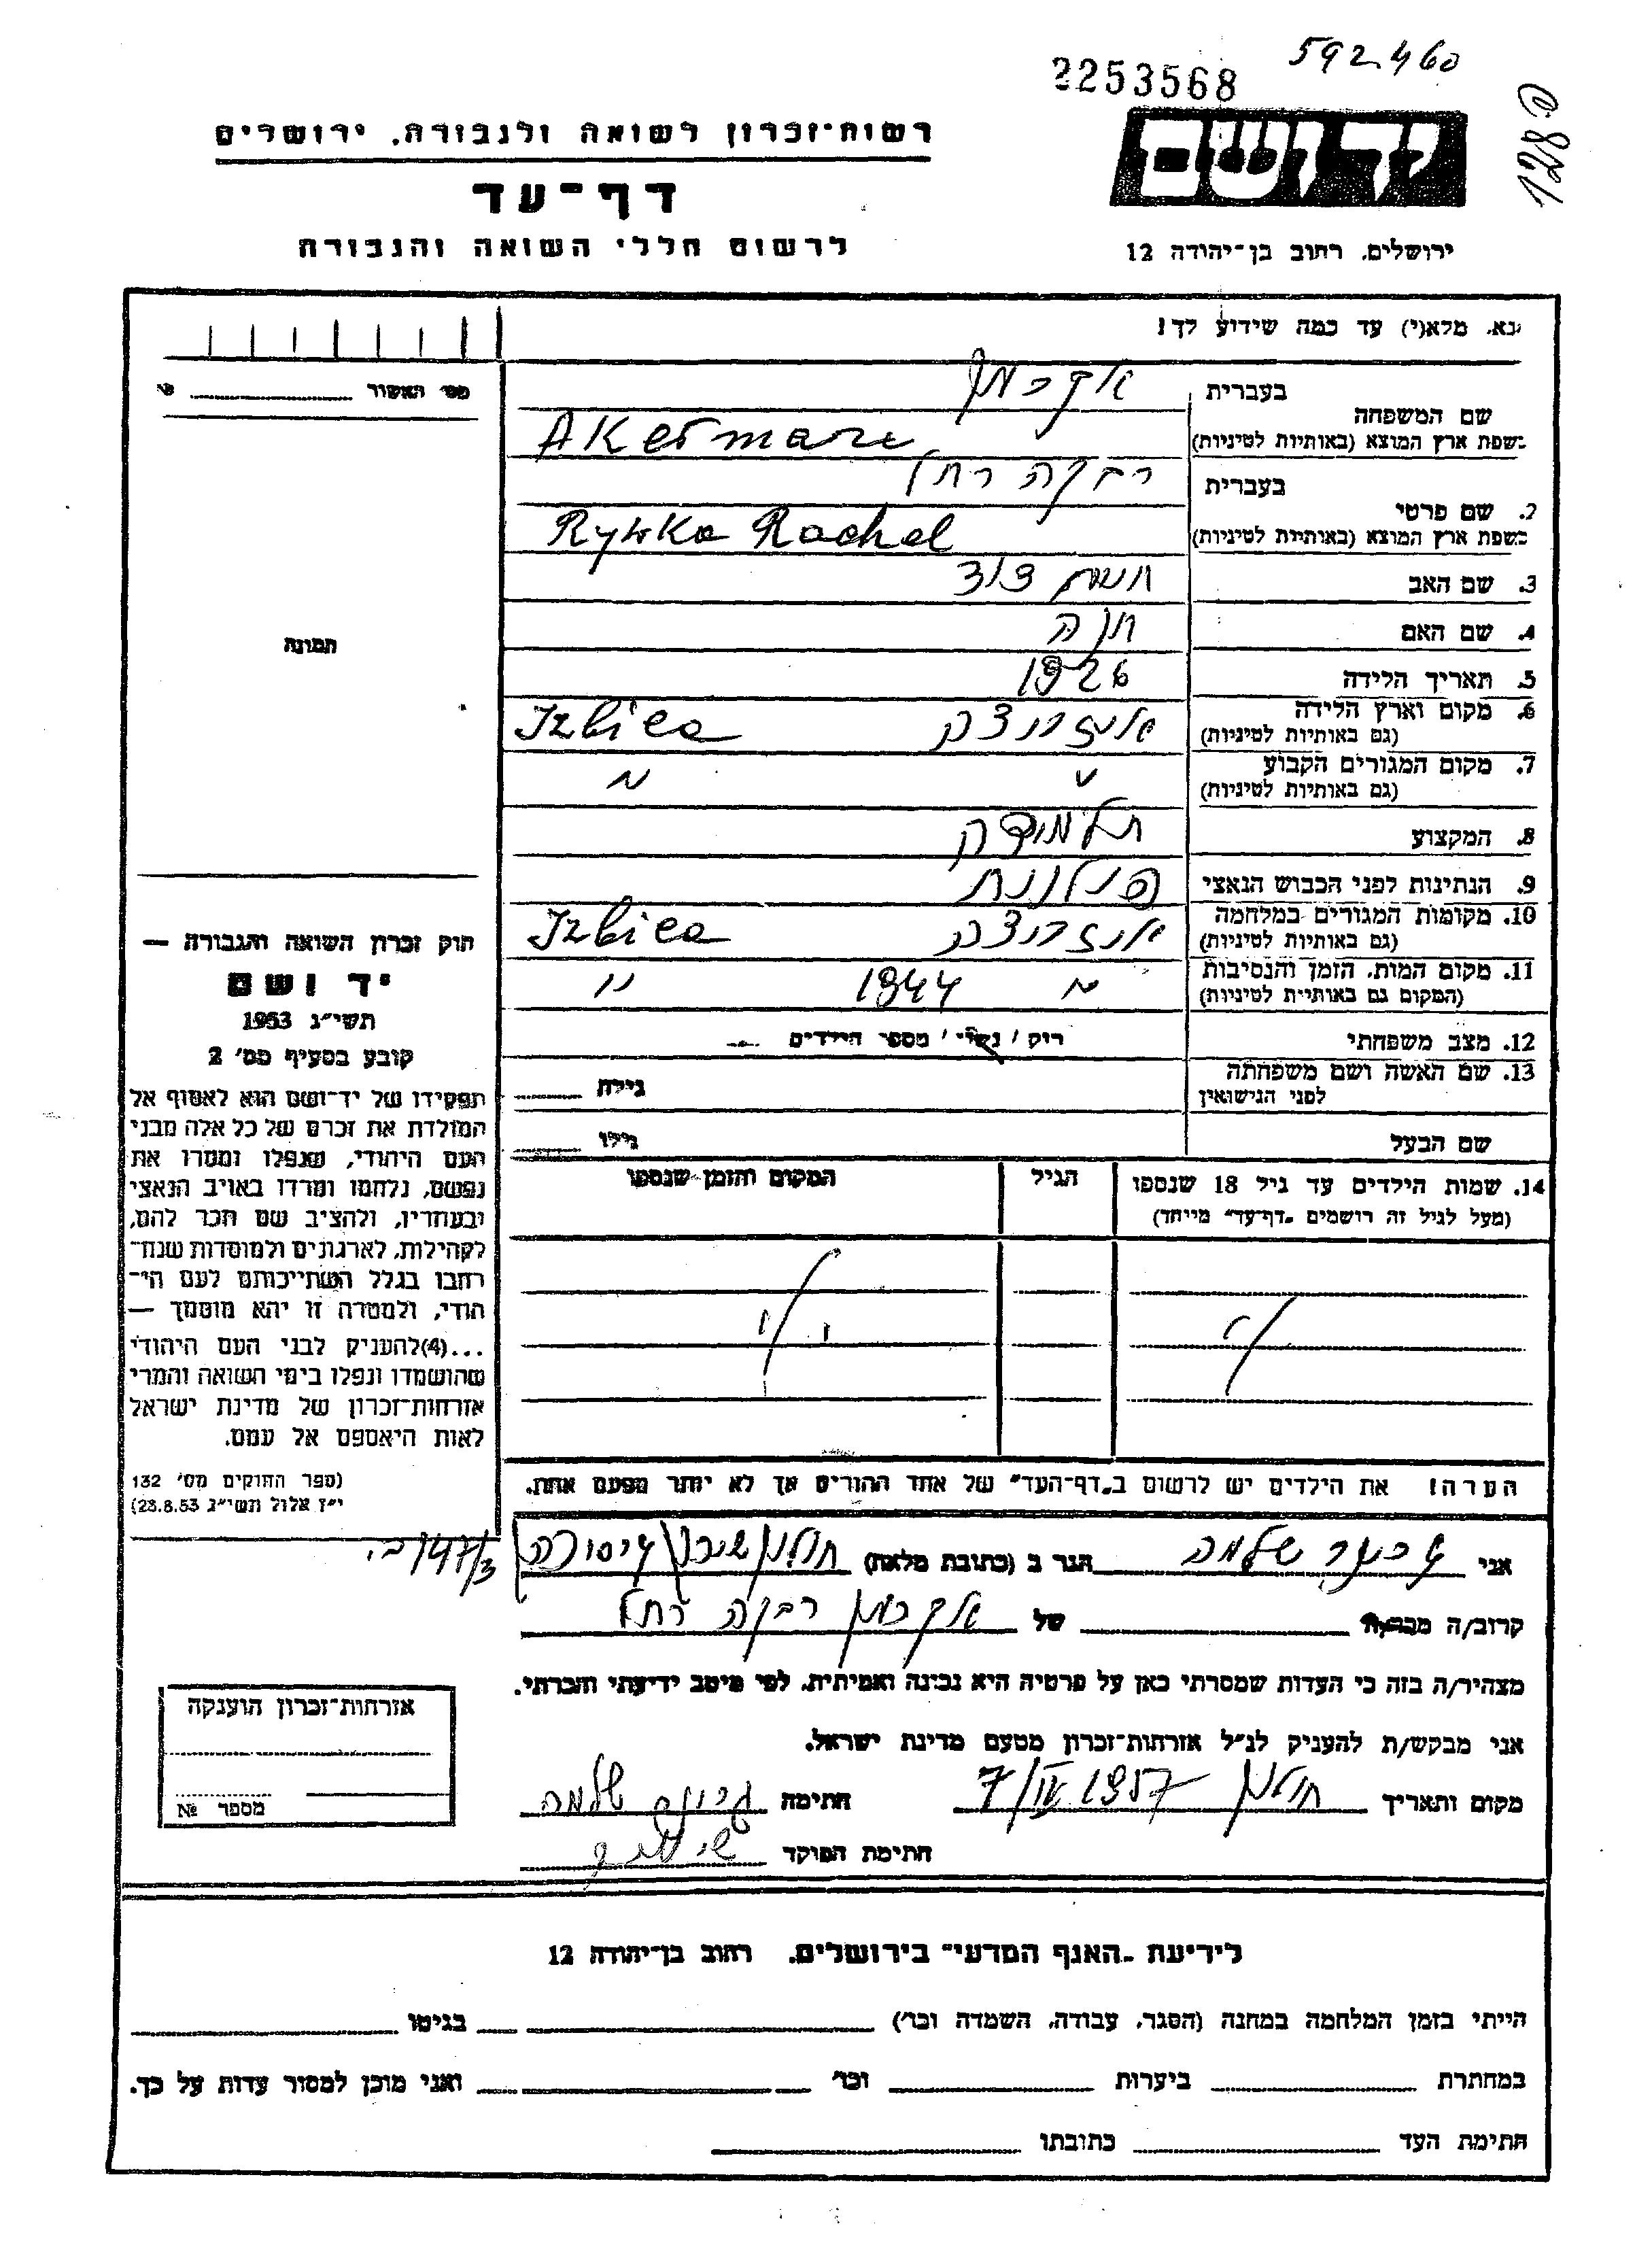 592.460
2253568
יד ושם
ירושלים, רחוב בן־יהודה 12
רשות־זכרון לשואה ולגבורה, ירושלים
דף־עד
לרשום חללי השואה והגבורה
נא, מלא(י) עד כמה שידוע לך!
מס׳ האשור
בעברית
אקרמן
שם המשפחה
בשפת ארץ המוצא (באותיות לטיניות)
Akerman
בעברית
רבקה רחל
2. שם פרטי
בשפת ארץ המוצא (באותיות לטיניות)
Rywka Rachel
3. שם האב
דוד
4. שם האם
חנה
5. תאריך הלידה
1926
6. מקום וארץ הלידה
(גם באותיות לטיניות)
Izbica
7. מקום המגורים הקבוע
(גם באותיות לטיניות)
״ ״
8. המקצוע
תלמידה
9. הנתינות לפני הכבוש הנאצי
פולנית
10. מקומות המגורים במלחמה
(גם באותיות לטיניות)
Izbica
11. מקום המות, הזמן והנסיבות
(המקום גם באותיות לטיניות)
״ 1944 ״
12. מצב משפחתי
רוק / נשוי / מספר הילדים
13. שם האשה ושם משפחתה
לפני הנישואין
גילה
שם הבעל
גילו
14. שמות הילדים עד גיל 18 שנספו
(מעל לגיל זה רושמים „דף־עד״ מייחד)
הגיל
המקום והזמן שנספו
הערה! את הילדים יש לרשום ב„דף־העד״ של אחד ההורים אך לא יותר מפעם אחת.
תמונה
חוק זכרון השואה והגבורה —
יד ושם
תשי״ג 1953
קובע בסעיף מס׳ 2
תפקידו של יד־ושם הוא לאסוף אל
המולדת את זכרם של כל אלה מבני
העם היהודי, שנפלו ומסרו את
נפשם, נלחמו ומרדו באויב הנאצי
ובעוזריו, ולהציב שם וזכר להם,
לקהילות, לארגונים ולמוסדות שנח־
רבו בגלל השתייכותם לעם הי־
הודי, ולמטרה זו יהא מוסמך —
...(4) להעניק לבני העם היהודי
שהושמדו ונפלו בימי השואה והמרי
אזרחות־זכרון של מדינת ישראל
לאות היאספם אל עמם.
(ספר החוקים מס׳ 132
י״ז אלול תשי״ג 28.8.53)
אני שלמה הגר ב (כתובת מלאה) חולון
קרוב/ה מכר/ה של אקרמן רבקה רחל
מצהיר/ה בזה כי העדות שמסרתי כאן על פרטיה היא נכונה ואמיתית, לפי מיטב ידיעתי והכרתי.
אני מבקש/ת להעניק לנ״ל אזרחות־זכרון מטעם מדינת ישראל.
מקום ותאריך חולון 7/IV 1957 חתימה שלמה
חתימת הפוקד
אזרחות־זכרון הוענקה
מספר №
לידיעת „האגף המדעי״ בירושלים, רחוב בן־יהודה 12
הייתי בזמן המלחמה במחנה (הסגר, עבודה, השמדה וכו׳) בגיטו
במחתרת ביערות וכו׳ ואני מוכן למסור עדות על כך.
חתימת העד כתובתו